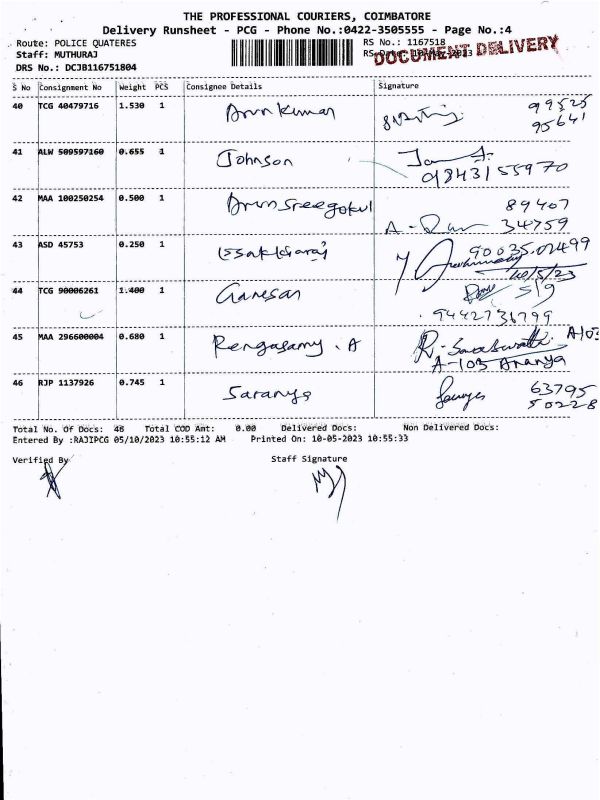 THE PROFESSIONAL COURIERS, COIMBATORE
Delivery Runsheet - PCG - Phone No.:0422-3505555 - Page No.:4
Route: POLICE QUATERES RS No.: 1167518
Staff: MUTHURAJ RS Date: DOCUMENT DELIVERY
DRS No.: DCJB116751804
S No Consignment No Weight PCS Consignee Details Signature
40 TCG 40479716 1.530 1 Arun Kumar 99525
95641
41 ALW 509597160 0.655 1 Johnson
9843155970
42 MAA 100250254 0.500 1 Arun Sreegokul 89407
34759
43 ASD 45753 0.250 1 Essakkiaraj 90035.02499
10/5/23
44 TCG 90006261 1.400 1 Ganesan S/g
9442736799
45 MAA 296600004 0.680 1 Rengasamy . A R. Saraswathi A-103
A-103 Ananya
46 RJP 1137926 0.745 1 Saranya 63795
50228
Total No. Of Docs: 46 Total COD Amt: 0.00 Delivered Docs: Non Delivered Docs:
Entered By :RAJIPCG 05/10/2023 10:55:12 AM Printed On: 10-05-2023 10:55:33
Verified By Staff Signature